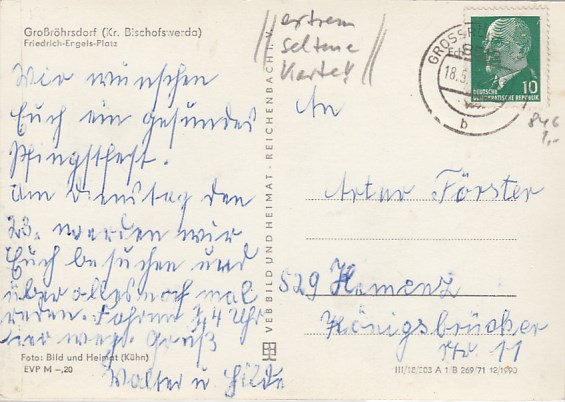 Großröhrsdorf (Kr. Bischofswerda)
Friedrich-Engels-Platz
Wir wünschen
Euch ein gesundes
Pfingstfest.
Am Dienstag den
23. werden wir
Euch besuchen und
über alles noch mal
reden. Fahren 3/4 Uhr
hier weg. Gruß
Walter u. Hilde
Foto: Bild und Heimat (Kühn)
EVP M -,20
VEB BILD UND HEIMAT · REICHENBACH I. V.
extrem
seltene
Karte!!
GROSSR
18.5.
b
10
DEUTSCHE
DEMOKRATISCHE REPUBLIK
846
1,-
An
Artur Förster
829 Kamenz
Königsbrücker
Str. 11
III/18/203 A 1/B 269/71 12/1990